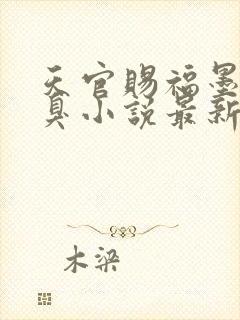 天官赐福墨
臭小说最新
木梁